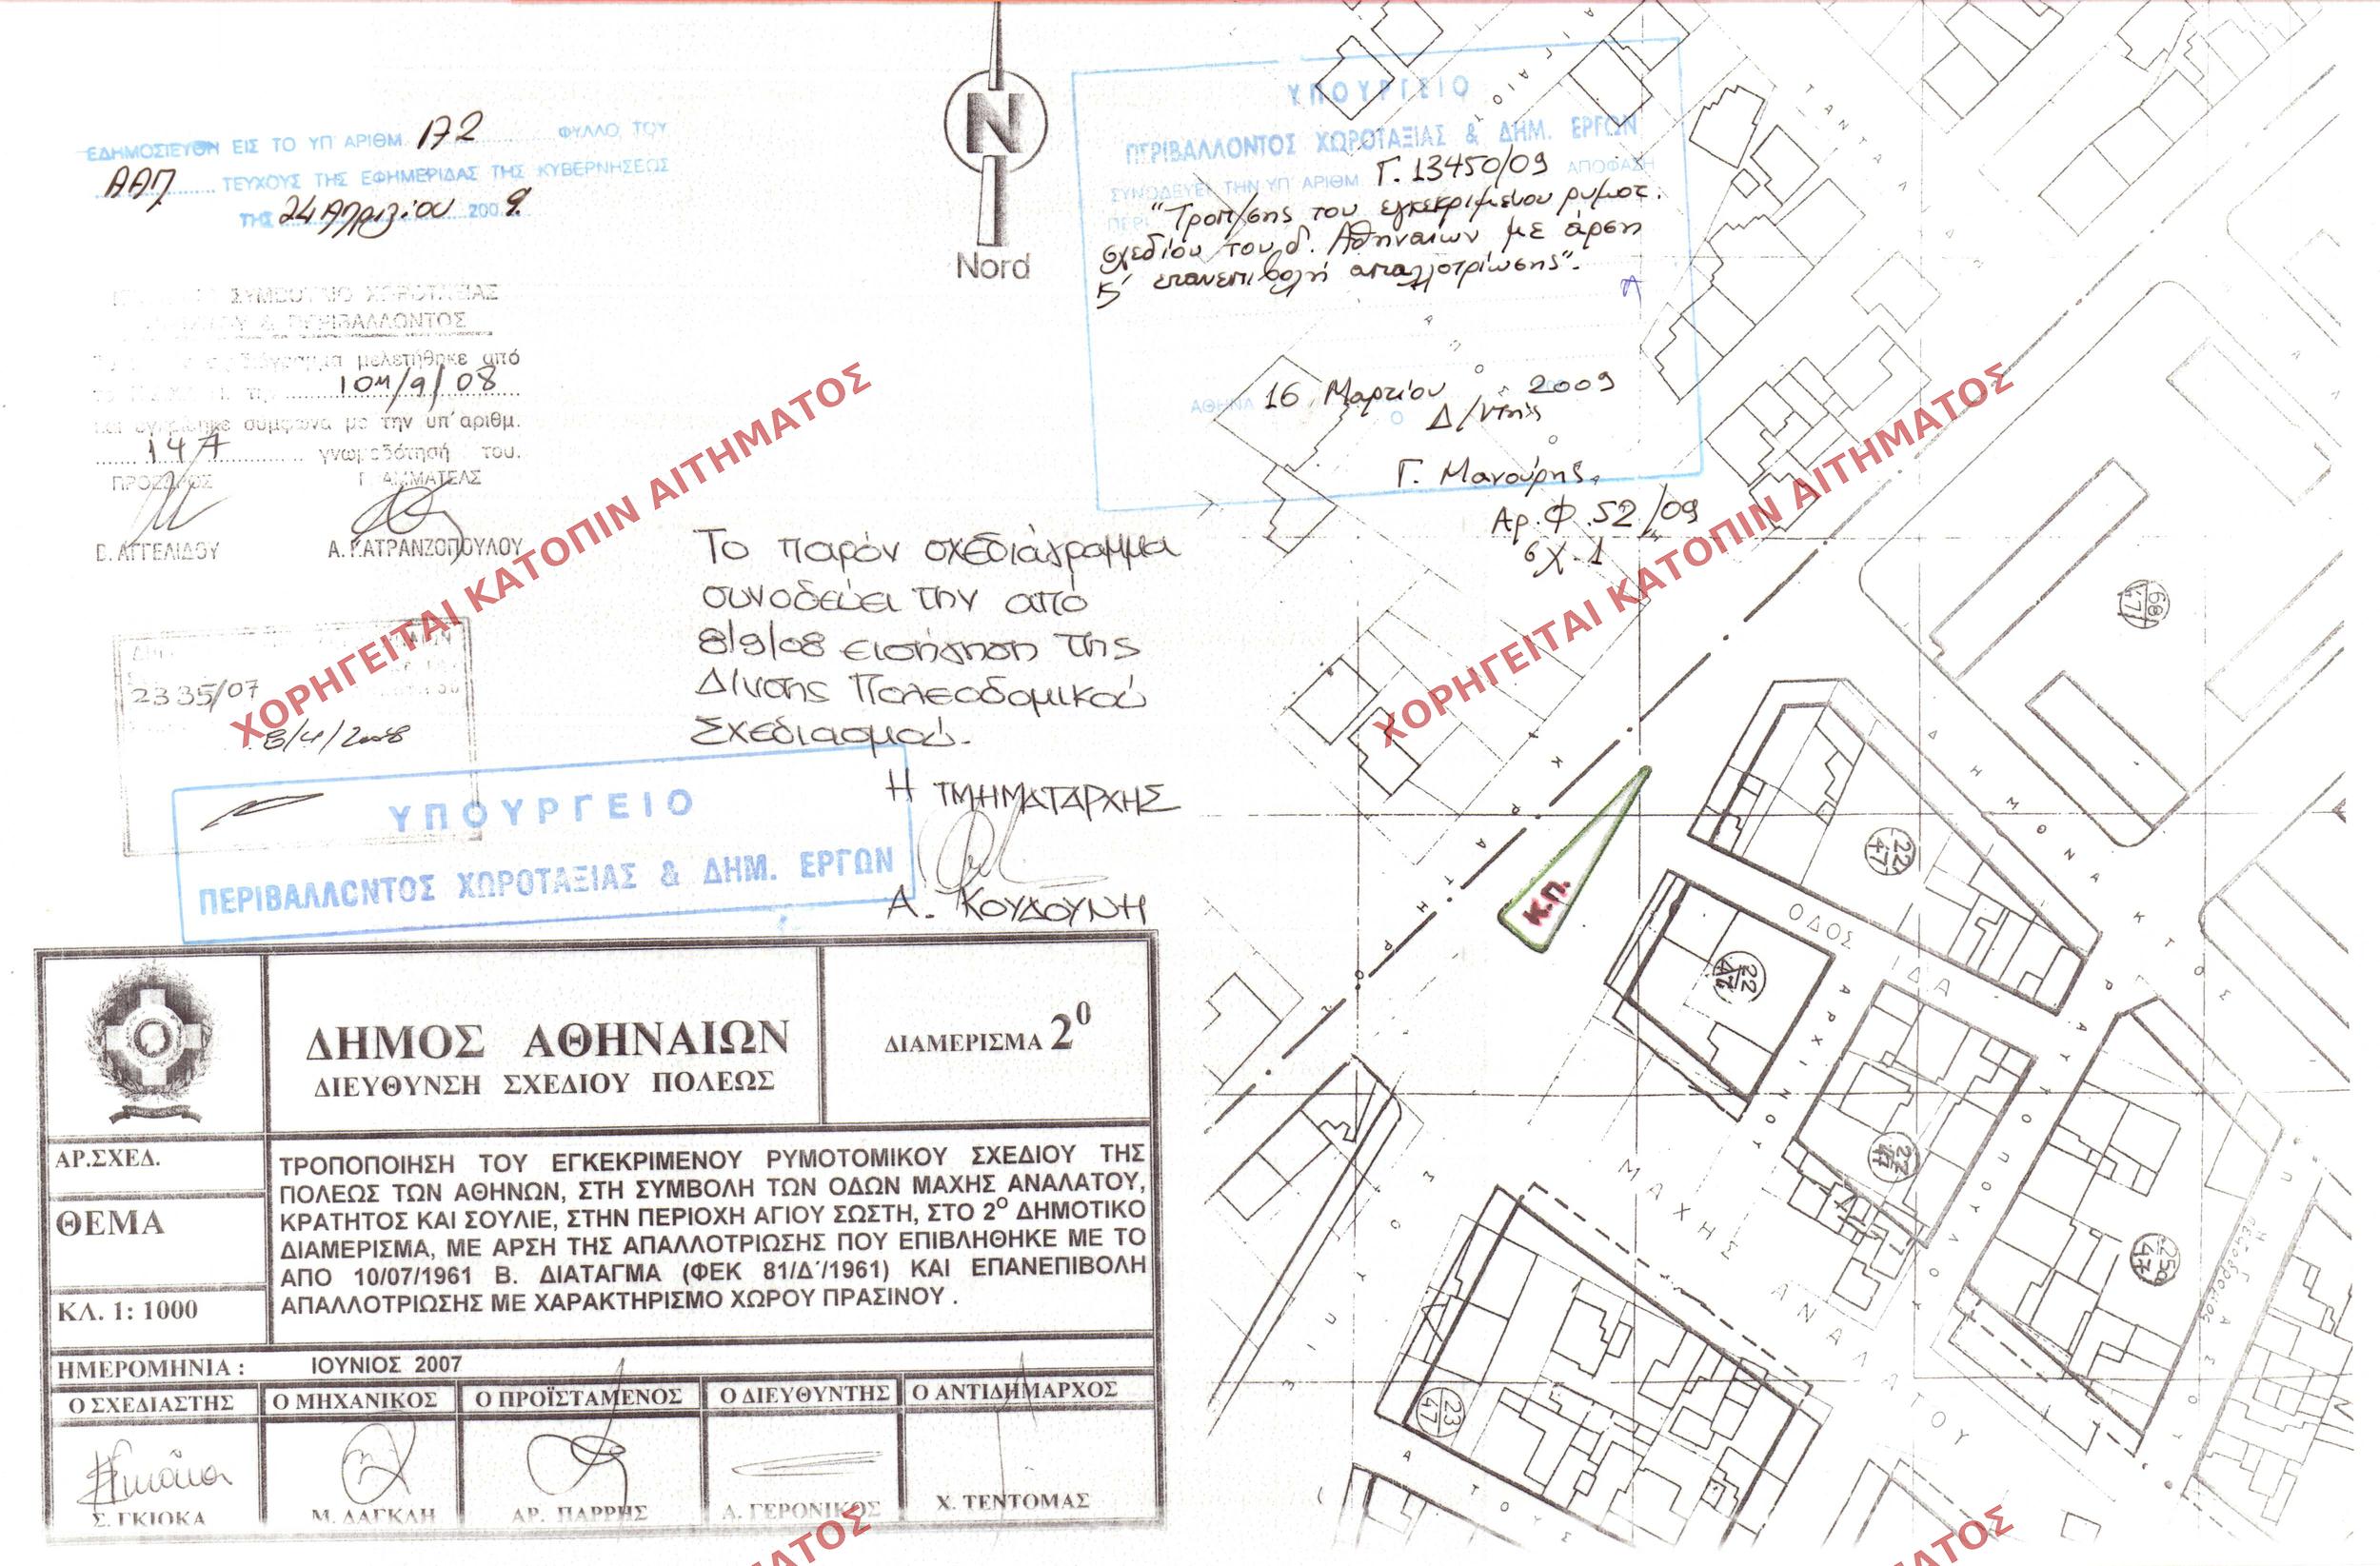 ΕΔΗΜΟΣΙΕΥΘΗ ΕΙΣ ΤΟ ΥΠ ΑΡΙΘΜ. 172 ΦΥΛΛΟ ΤΟΥ
ΑΑΠ ΤΕΥΧΟΥΣ ΤΗΣ ΕΦΗΜΕΡΙΔΑΣ ΤΗΣ ΚΥΒΕΡΝΗΣΕΩΣ
ΤΗΣ 24 Απριλίου 2009
ΣΥΜΒΟΥΛΙΟ ΧΩΡΟΤΑΞΙΑΣ
& ΠΕΡΙΒΑΛΛΟΝΤΟΣ
μελετήθηκε από
10η/9/08
σύμφωνα με την υπ' αριθμ.
14Α γνωμοδότησή του.
ΠΡΟΕΔΡΟΣ Γ ΑΜΜΑΤΕΑΣ
ΑΓΓΕΛΙΔΟΥ Α. ΚΑΤΡΑΝΖΟΠΟΥΛΟΥ
2335/07
8/4/2008
N
Nord
ΥΠΟΥΡΓΕΙΟ
ΠΕΡΙΒΑΛΛΟΝΤΟΣ ΧΩΡΟΤΑΞΙΑΣ & ΔΗΜ. ΕΡΓΩΝ
ΣΥΝΟΔΕΥΕΙ ΤΗΝ ΥΠ ΑΡΙΘΜ. Γ. 13450/09 ΑΠΟΦΑΣΗ
ΠΕΡΙ "Τροπ/σης του εγκεκριμένου ρυμοτ.
σχεδίου του δ. Αθηναίων με άρση
κ' επανεπιβολή απαλλοτρίωσης".
ΑΘΗΝΑ 16 Μαρτίου 2009
Δ/ντής
Γ. Μανούρης
Αρ. Φ. 52/09
σχ. 1
Το παρόν σχεδιάγραμμα
συνοδεύει την από
8/9/08 εισήγηση της
Δ/νσης Πολεοδομικού
Σχεδιασμού.
Η ΤΜΗΜΑΤΑΡΧΗΣ
Α. ΚΟΥΔΟΥΝΗ
ΥΠΟΥΡΓΕΙΟ
ΠΕΡΙΒΑΛΛΟΝΤΟΣ ΧΩΡΟΤΑΞΙΑΣ & ΔΗΜ. ΕΡΓΩΝ
ΔΗΜΟΣ ΑΘΗΝΑΙΩΝ
ΔΙΕΥΘΥΝΣΗ ΣΧΕΔΙΟΥ ΠΟΛΕΩΣ
ΔΙΑΜΕΡΙΣΜΑ 2⁰
ΑΡ.ΣΧΕΔ.
ΘΕΜΑ
ΚΛ. 1: 1000
ΤΡΟΠΟΠΟΙΗΣΗ ΤΟΥ ΕΓΚΕΚΡΙΜΕΝΟΥ ΡΥΜΟΤΟΜΙΚΟΥ ΣΧΕΔΙΟΥ ΤΗΣ
ΠΟΛΕΩΣ ΤΩΝ ΑΘΗΝΩΝ, ΣΤΗ ΣΥΜΒΟΛΗ ΤΩΝ ΟΔΩΝ ΜΑΧΗΣ ΑΝΑΛΑΤΟΥ,
ΚΡΑΤΗΤΟΣ ΚΑΙ ΣΟΥΛΙΕ, ΣΤΗΝ ΠΕΡΙΟΧΗ ΑΓΙΟΥ ΣΩΣΤΗ, ΣΤΟ 2Ο ΔΗΜΟΤΙΚΟ
ΔΙΑΜΕΡΙΣΜΑ, ΜΕ ΑΡΣΗ ΤΗΣ ΑΠΑΛΛΟΤΡΙΩΣΗΣ ΠΟΥ ΕΠΙΒΛΗΘΗΚΕ ΜΕ ΤΟ
ΑΠΟ 10/07/1961 Β. ΔΙΑΤΑΓΜΑ (ΦΕΚ 81/Δ΄/1961) ΚΑΙ ΕΠΑΝΕΠΙΒΟΛΗ
ΑΠΑΛΛΟΤΡΙΩΣΗΣ ΜΕ ΧΑΡΑΚΤΗΡΙΣΜΟ ΧΩΡΟΥ ΠΡΑΣΙΝΟΥ .
ΗΜΕΡΟΜΗΝΙΑ : ΙΟΥΝΙΟΣ 2007
Ο ΣΧΕΔΙΑΣΤΗΣ Ο ΜΗΧΑΝΙΚΟΣ Ο ΠΡΟΪΣΤΑΜΕΝΟΣ Ο ΔΙΕΥΘΥΝΤΗΣ Ο ΑΝΤΙΔΗΜΑΡΧΟΣ
Σ. ΓΚΙΟΚΑ Μ. ΔΑΓΚΛΗ ΑΡ. ΠΑΡΡΗΣ Α. ΓΕΡΟΝΙΚΟΣ Χ. ΤΕΝΤΟΜΑΣ
ΧΟΡΗΓΕΙΤΑΙ ΚΑΤΟΠΙΝ ΑΙΤΗΜΑΤΟΣ
ΧΟΡΗΓΕΙΤΑΙ ΚΑΤΟΠΙΝ ΑΙΤΗΜΑΤΟΣ
ΜΑΤΟΣ
ΜΑΤΟΣ
ΤΑΝΤΑΛ
68Α
47
ΔΗΜΟΝΑΚΤΟΣ
ΚΡΑΤΗΤΟΣ
Κ.Π.
22α
47
ΟΔΟΣ ΙΔΑ
22
47
ΑΡΧΙΝΟΥ
27
47
ΜΑΧΗΣ ΑΝΑΛΑΤΟΥ
25α
47
23
47
ΑΤΟΥΣ